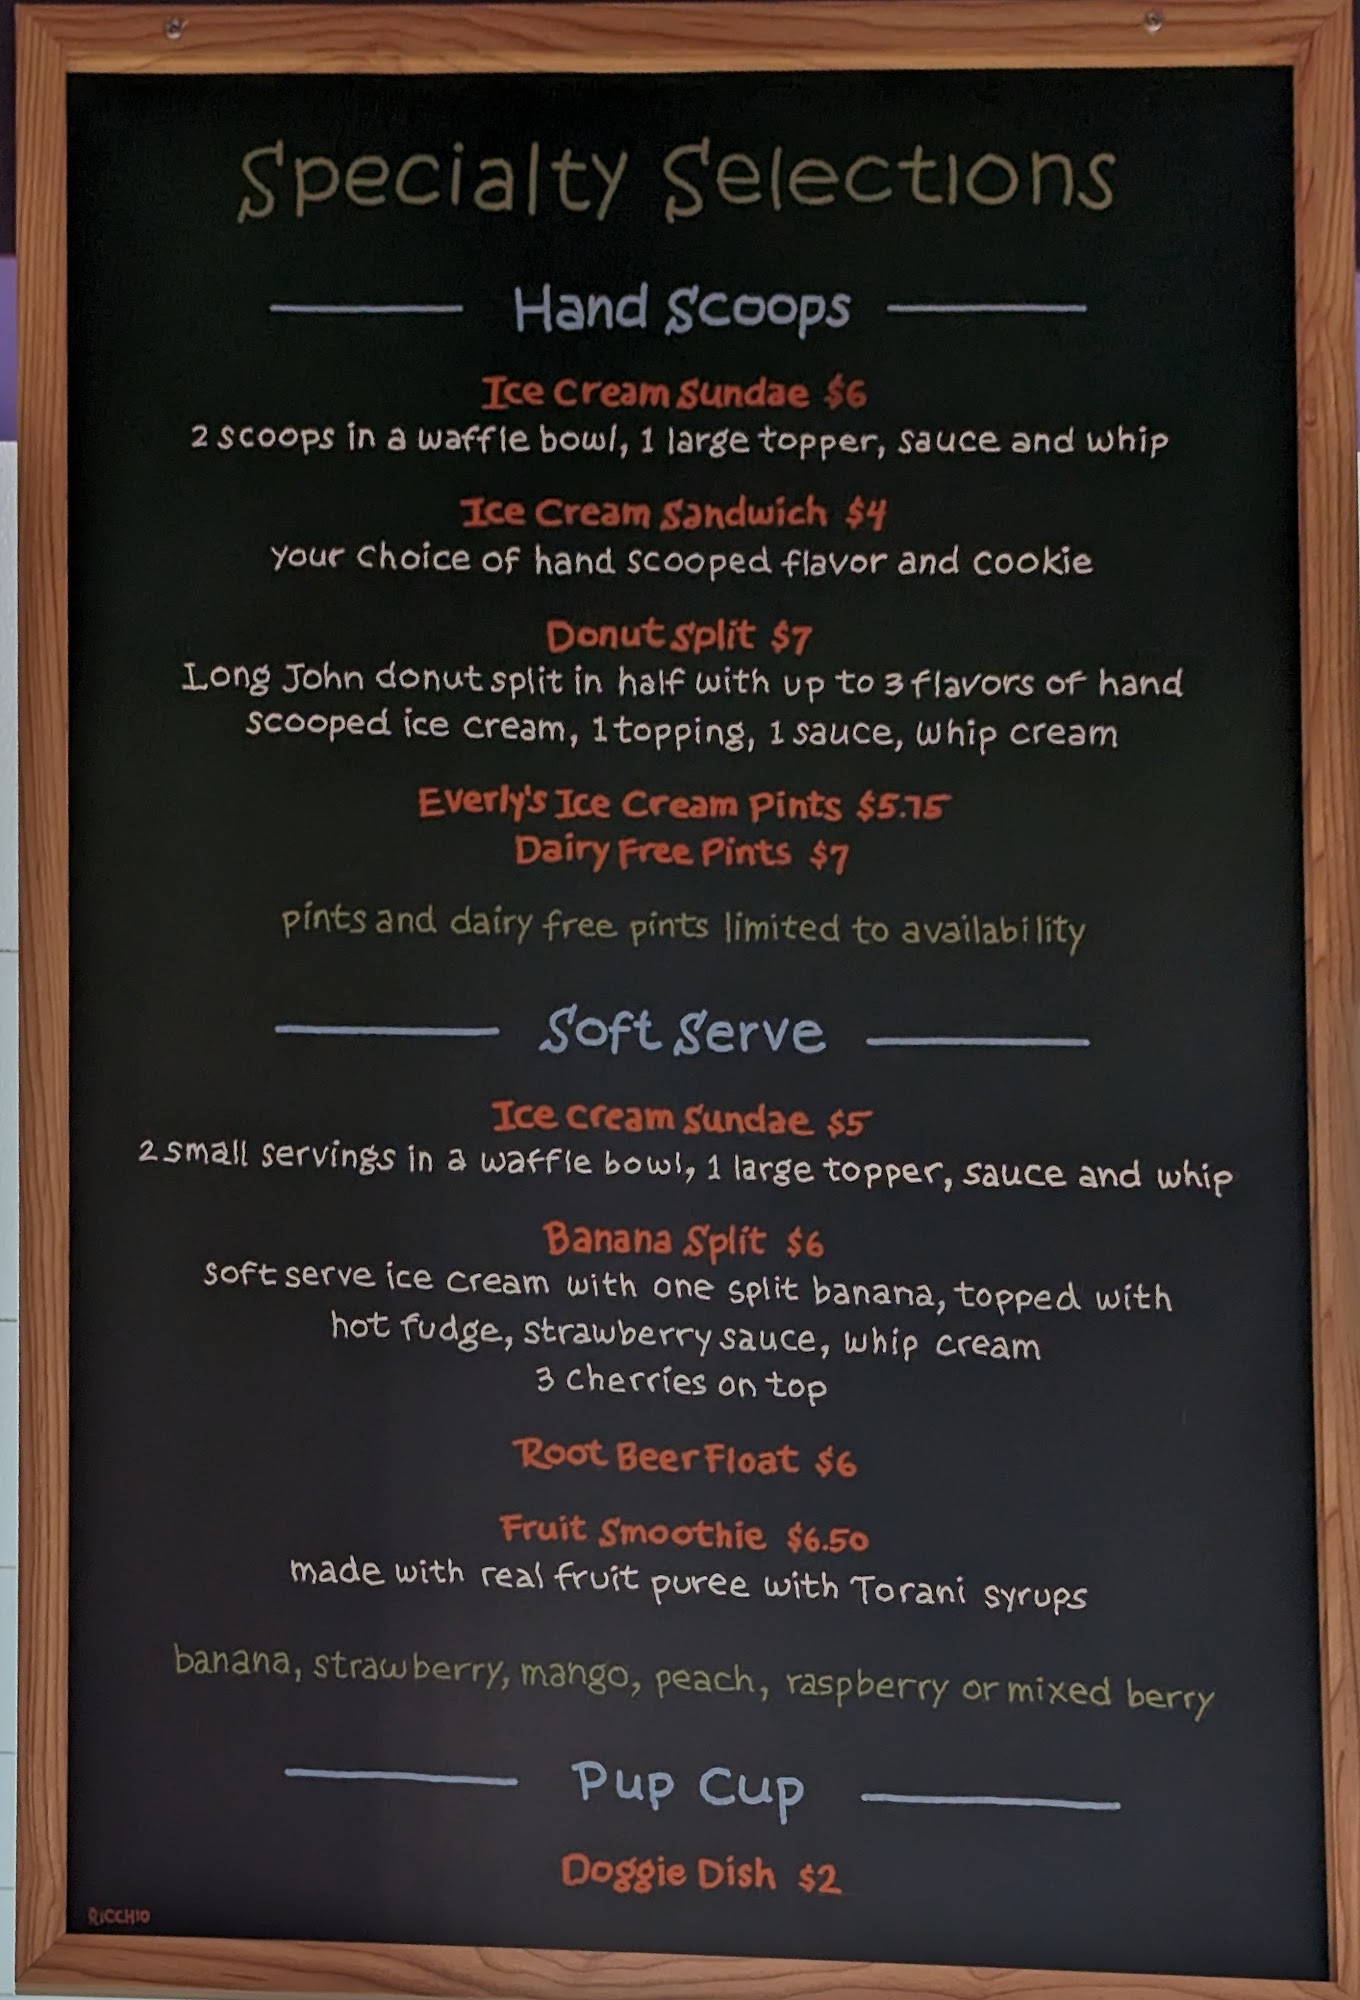 Specialty Selections
Hand Scoops
Ice Cream Sundae $6
2 scoops in a waffle bowl, 1 large topper, sauce and whip
Ice Cream Sandwich $4
your choice of hand scooped flavor and cookie
Donut Split $7
Long John donut split in half with up to 3 flavors of hand
scooped ice cream, 1 topping, 1 sauce, whip cream
Everly's Ice Cream Pints $5.75
Dairy Free Pints $7
pints and dairy free pints limited to availability
Soft Serve
Ice cream Sundae $5
2 small servings in a waffle bowl, 1 large topper, sauce and whip
Banana Split $6
soft serve ice cream with one split banana, topped with
hot fudge, strawberry sauce, whip cream
3 cherries on top
Root Beer Float $6
Fruit Smoothie $6.50
made with real fruit puree with Torani syrups
banana, strawberry, mango, peach, raspberry or mixed berry
Pup Cup
Doggie Dish $2
RICCHIO